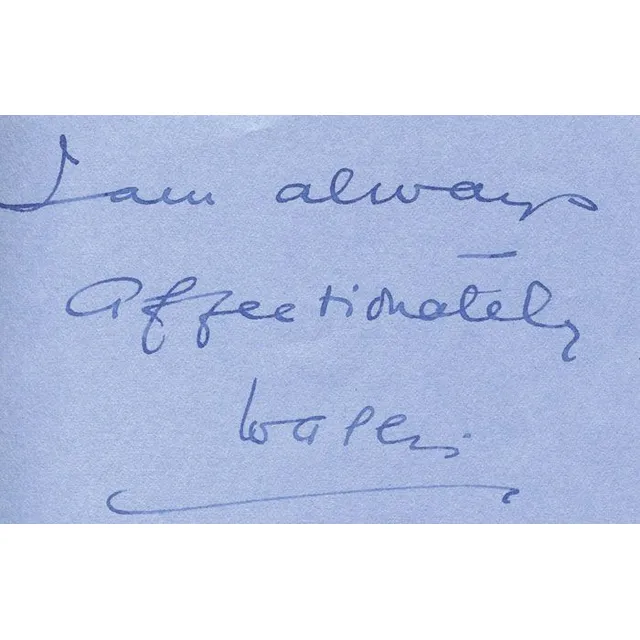 I am always
affectionately